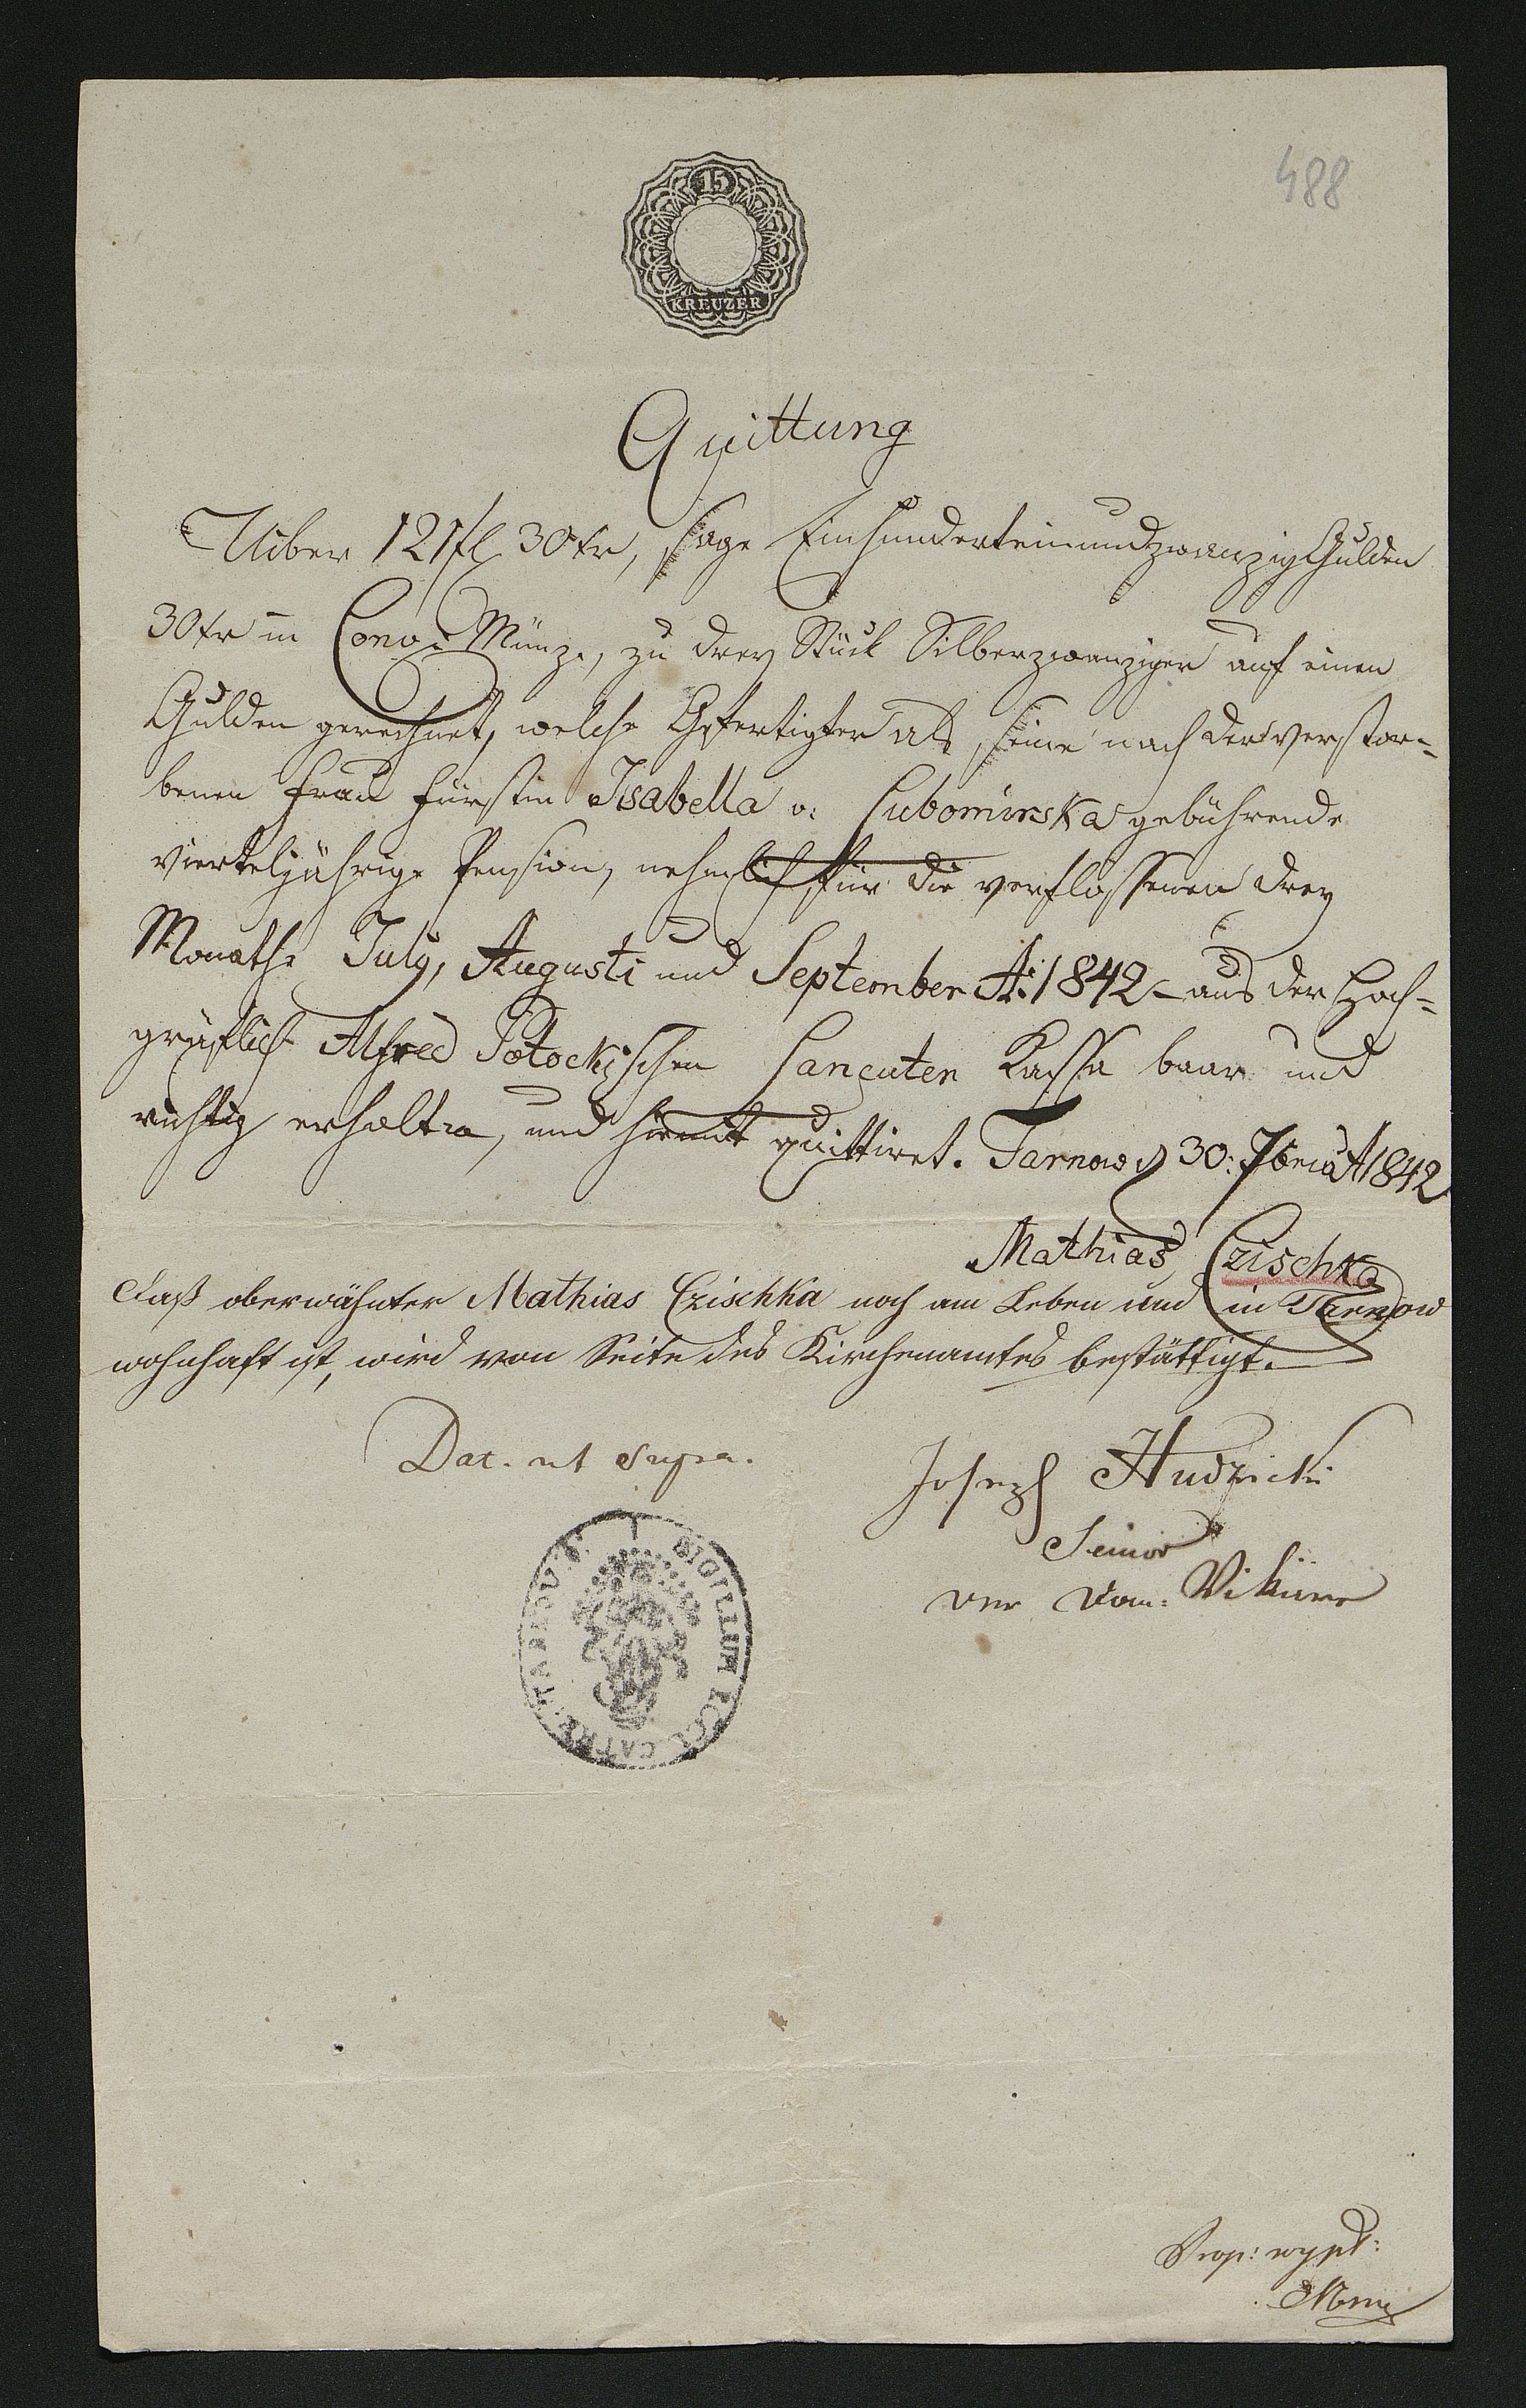 488
15
KREUZER
Quittung
Uiber 121 fl 30 kr, sage Einhunderteinundzwanzig Gulden
30 kr in Conv: Münze, zu drey Stück Silberzwanziger auf einen
Gulden gerechnet, welche Gefertigter als seine nach der verstor=
benen Frau Fürstin Isabella v: Lubomirska gebührende
vierteljährige Pension, nehmlich für die verflossenen drey
Monathe July, Augusti und September A: 1842 – aus der Hoch=
gräflich Alfred Potockischen Lancuter Kassa baar und
richtig erhalten, und hiemit quittiret. Tarnow d 30: 7bris A 1842
Mathias Czischka
Daß oberwähnter Mathias Czischka noch am Leben und in Tarnow
wohnhaft ist, wird von Seite des Kirchenamtes bestättigt.
Dat. ut supra.
Joseph Hudzicki
Senior
der Dom: Vikäre
SIGILLUM ECCL CATHE